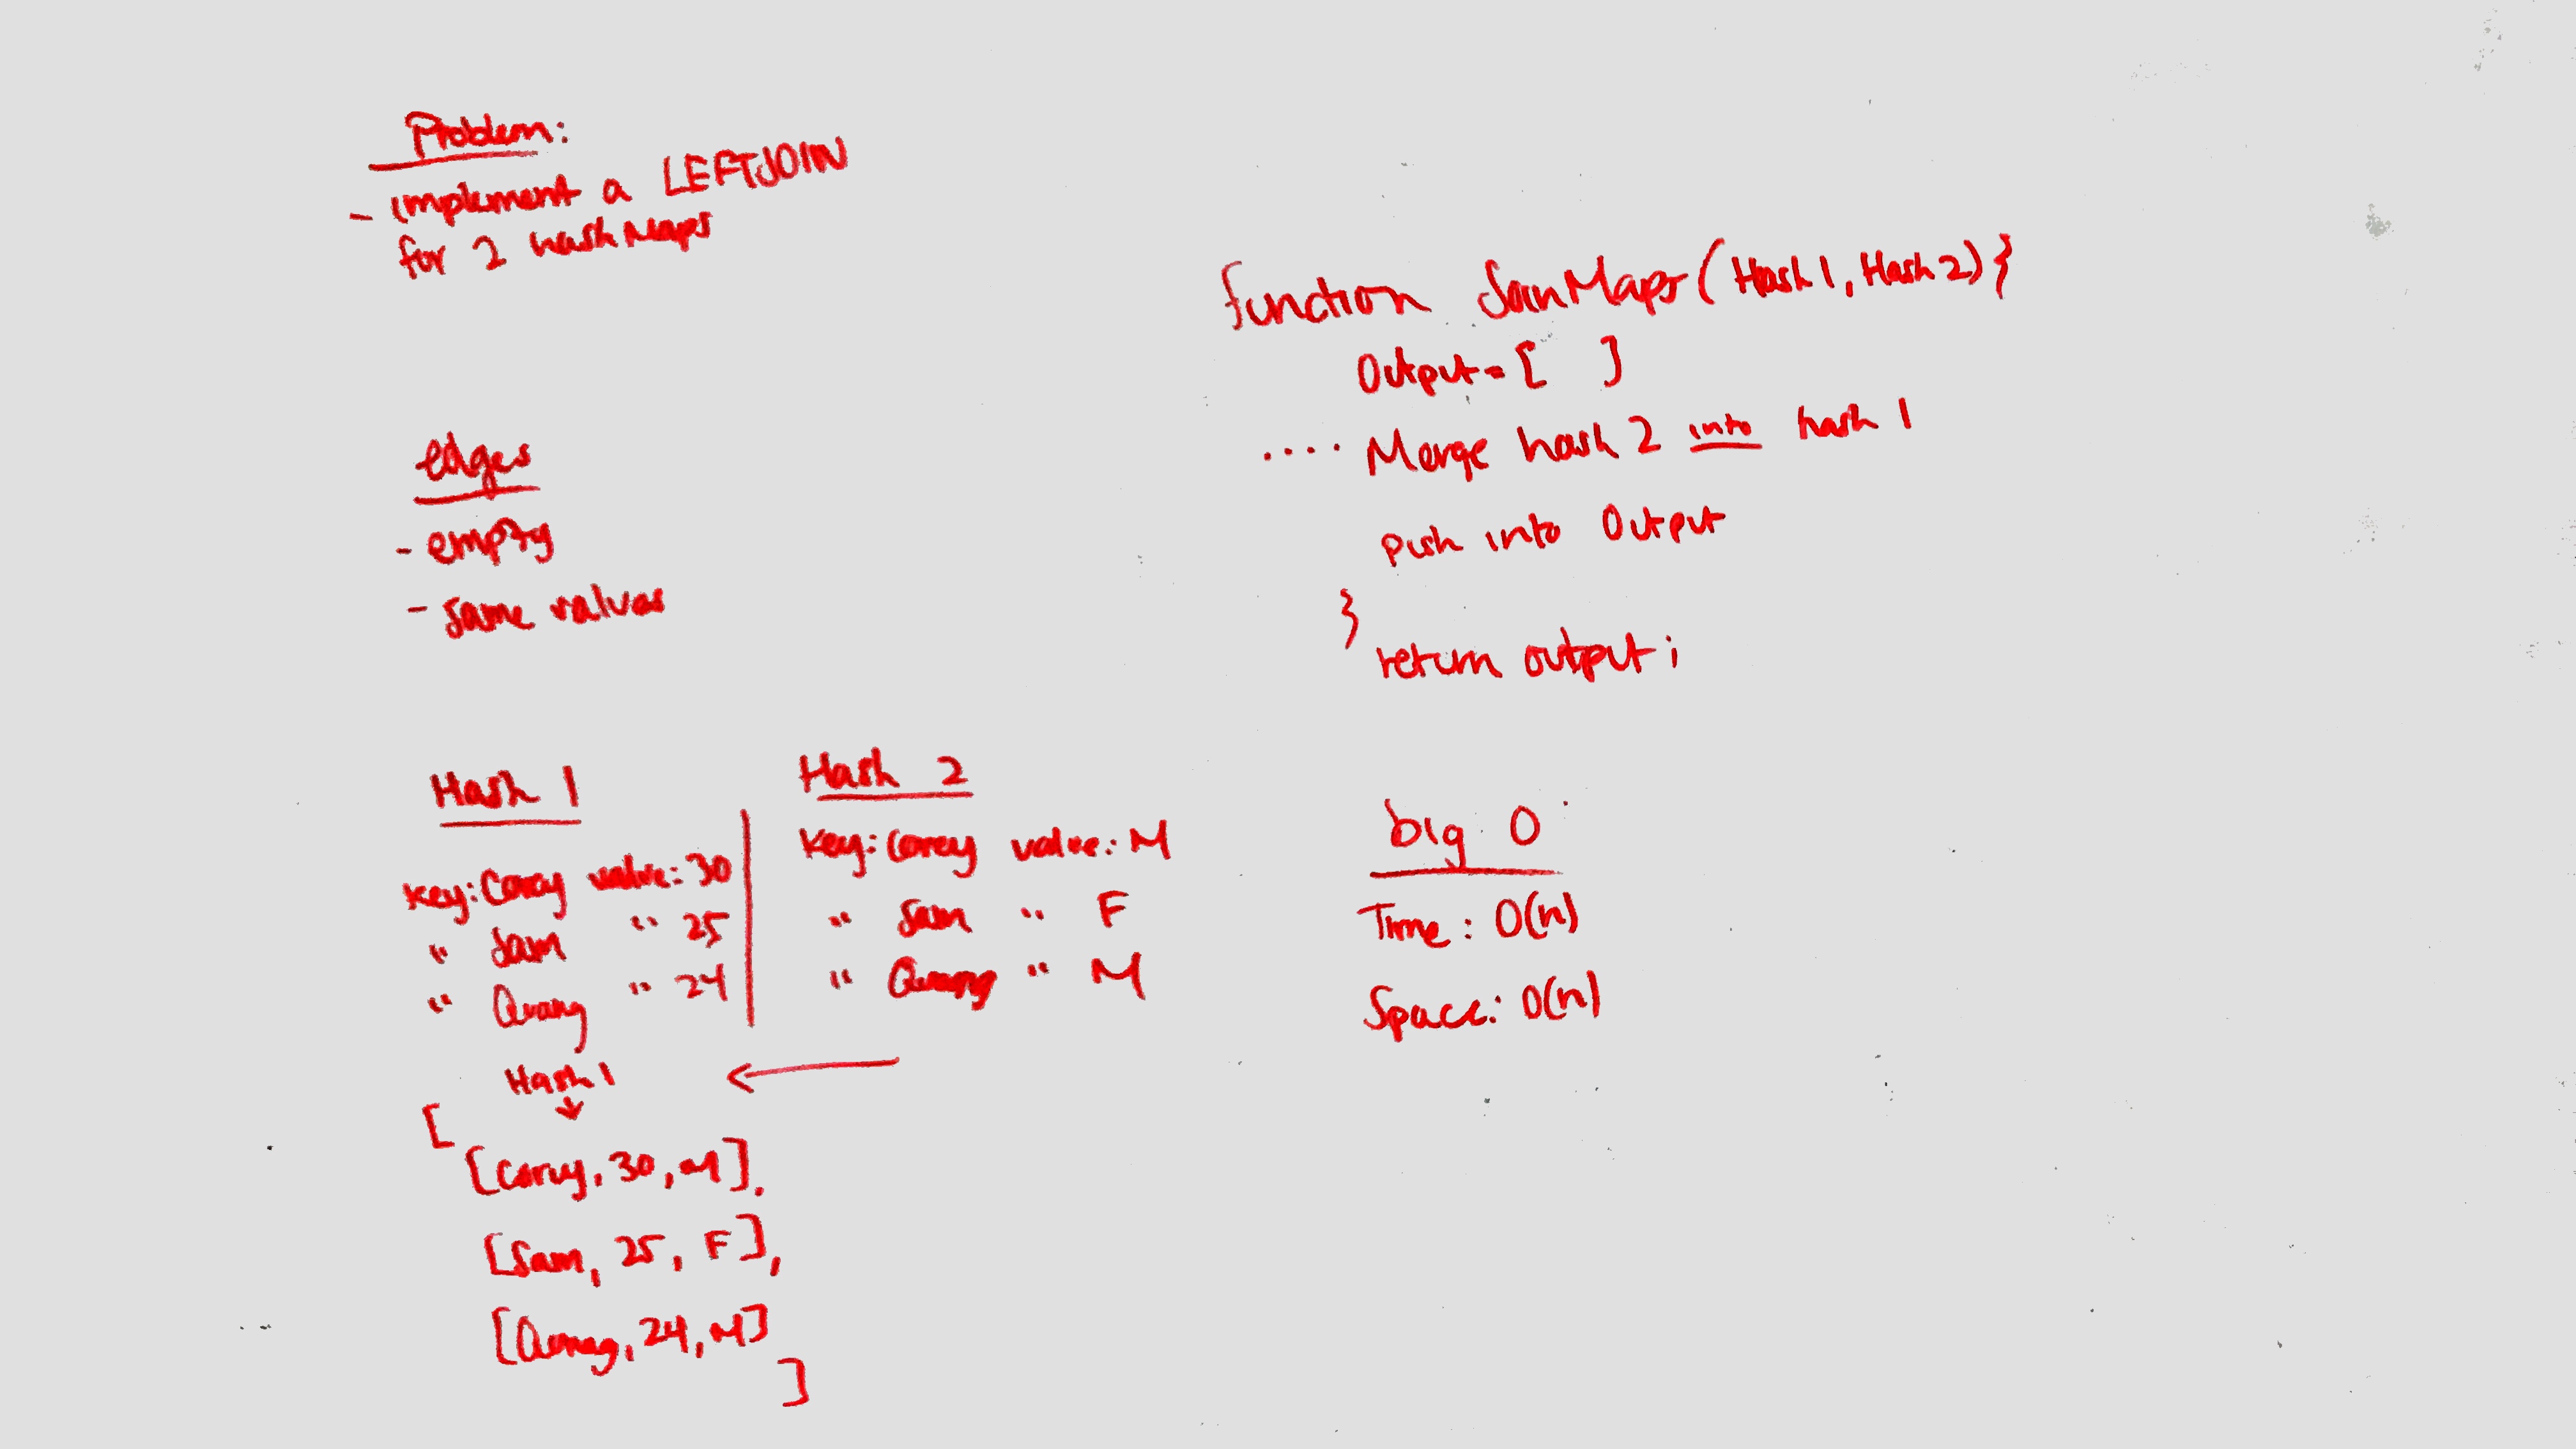 Problem:
- implement a LEFTJOIN
for 2 hashMaps
edges
- empty
- same values
Hash 1
key: Corey value: 30
" Sam " 25
" Quang " 24
Hash 2
key: Corey value: M
" Sam " F
" Quang " M
Hash 1
[
[Corey, 30, M],
[Sam, 25, F],
[Quang, 24, M]
]
function JoinMaps(Hash1, Hash2){
Output = [ ]
.... Merge hash 2 into hash 1
push into Output
}
return output;
big O
Time: O(n)
Space: O(n)